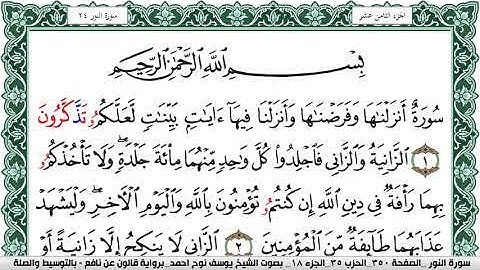 الجزء الثامن عشر
سورة النور ٢٤
بِسْمِ اللَّهِ الرَّحْمَٰنِ الرَّحِيمِ
سُورَةٌ أَنزَلْنَٰهَا وَفَرَضْنَٰهَا وَأَنزَلْنَا فِيهَآ ءَايَٰتِۭ بَيِّنَٰتٖ لَّعَلَّكُمُۥ تَذَّكَّرُونَ
١ الزَّانِيَةُ وَالزَّانِي فَاجْلِدُوا كُلَّ وَٰحِدٖ مِّنْهُمَا مِاْئَةَ جَلْدَةٖ ۖ وَلَا تَأْخُذْكُمُۥ
بِهِمَا رَأْفَةٞ فِي دِينِ اللَّهِ إِن كُنتُمُۥ تُؤْمِنُونَ بِاللَّهِ وَالْيَوْمِ الْأَخِرِ ۖ وَلْيَشْهَدْ
عَذَابَهُمَا طَآئِفَةٞ مِّنَ الْمُؤْمِنِينَ ٢ الزَّانِي لَا يَنكِحُ إِلَّا زَانِيَةً أَوْ
سورة النور _ الصفحة ٣٥٠_ الحزب ٣٥_ الجزء ١٨_ بصوت الشيخ يوسف نوح احمد_ برواية قالون عن نافع - بالتوسيط والصلة